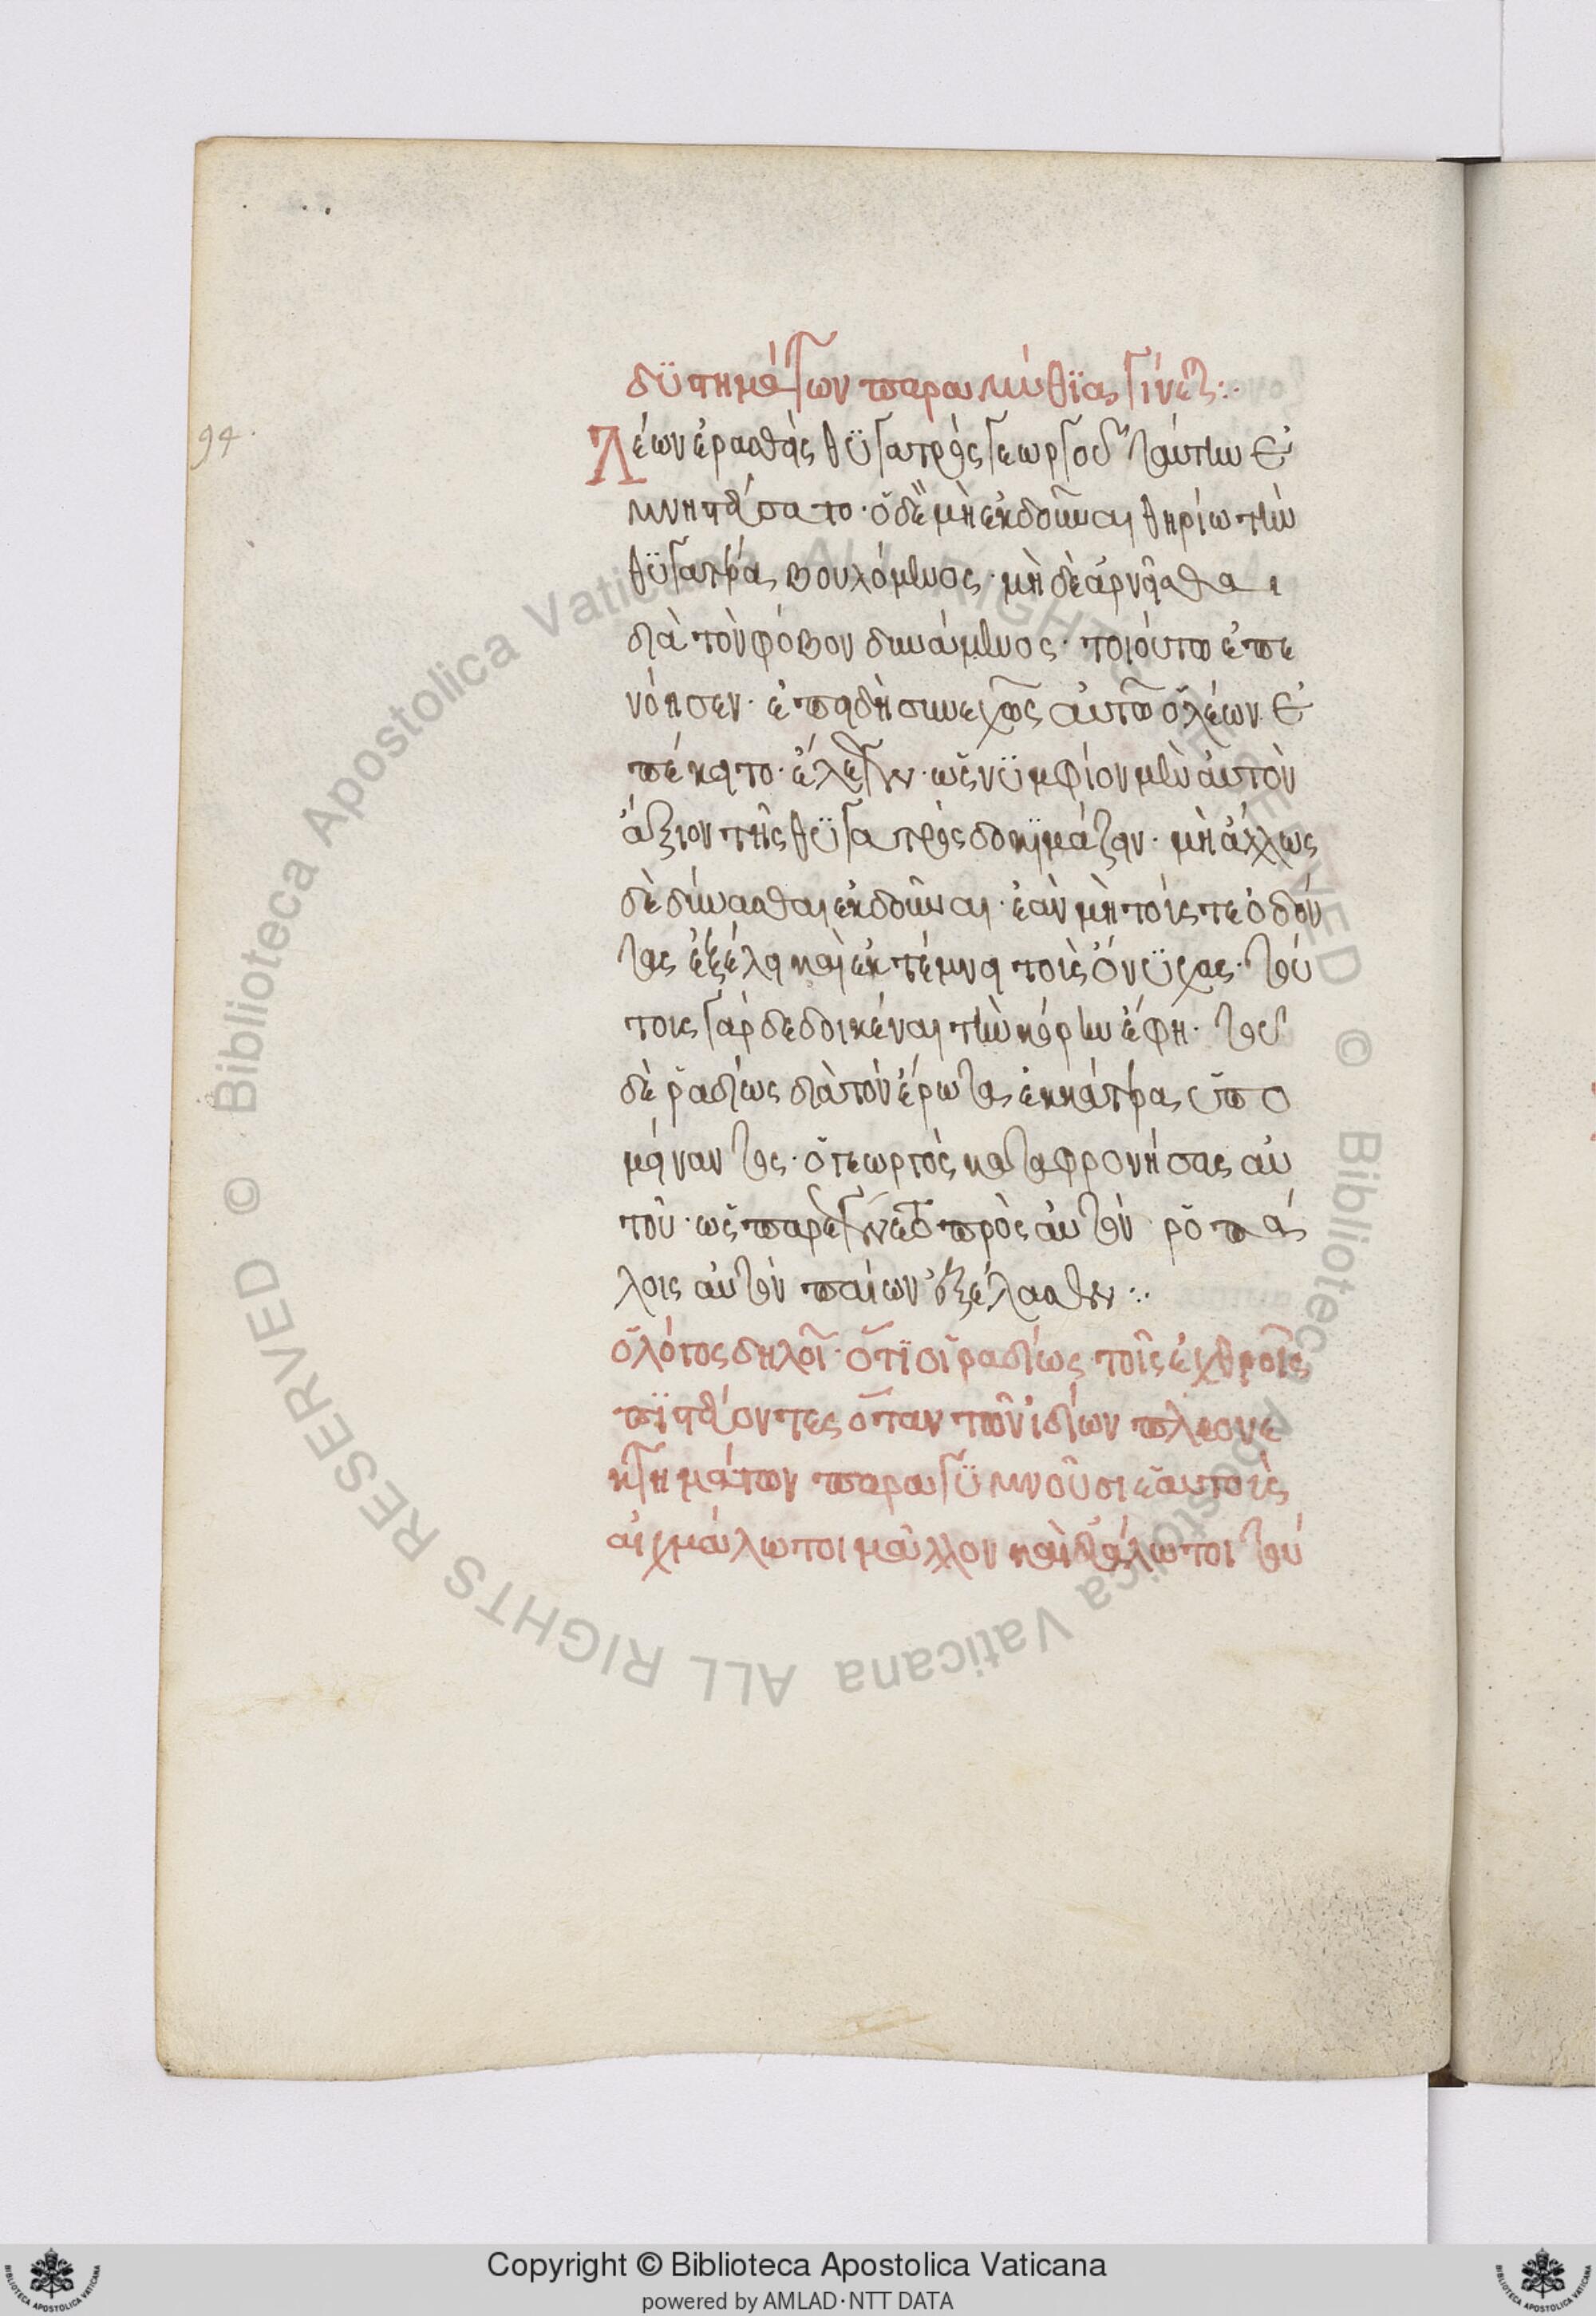 δυστημάτων παραμυθίας γίνεται:·
94.
Λέων ἐρασθεὶς θϋγατρὸς γεωργοῦ ταύτην ἐ
μνηστεύσατο· ὁ δὲ μὴ ἐκδοῦναι θηρίω τὴν
θϋγατέρα βουλόμενος· μὴ δὲ ἀρνεῖσθαι
διὰ τὸν φόβον δυνάμενος· τοιοῦτο ἐπε
νόησεν· ἐπειδὴ συνεχῶς αὐτῶ ὁ λέων ἐ
πέκειτο· ἔλεγεν· ὡς νϋμφίον μὲν αὐτὸν
ἄξιον τῆς θϋγατρὸς δοκιμάζειν· μὴ ἄλλως
δὲ δύνασθαι ἐκδοῦναι· ἐὰν μὴ τούς τε ὀδόν
τας ἐξέλη καὶ ἐκτέμη τοὺς ὄνϋχας· τού
τους γὰρ δεδοικέναι τὴν κόρην ἔφη· τοῦ
δὲ ῥαδίως διὰ τὸν ἔρωτα ἑκάτερα ὑπο
μείναντος· ὁ γεωργὸς καταφρονήσας αὐ
τοῦ· ὡς παρεγένετο πρὸς αὐτὸν ῥοπά
λοις αὐτὸν παίων ἐξέλασεν:·
ὁ λόγος δηλοῖ· ὅτϊ οἱ ῥαδίως τοῖς ἐχθροῖς
πϊστεύοντες ὅταν τῶν ἰδίων πλεονε
κτημάτων παραγϋμνοῦσι ἑαυτοὺς
αἰχμάλωτοι μᾶλλον καὶ εὐάλωτοι τού
Copyright © Biblioteca Apostolica Vaticana
powered by AMLAD·NTT DATA